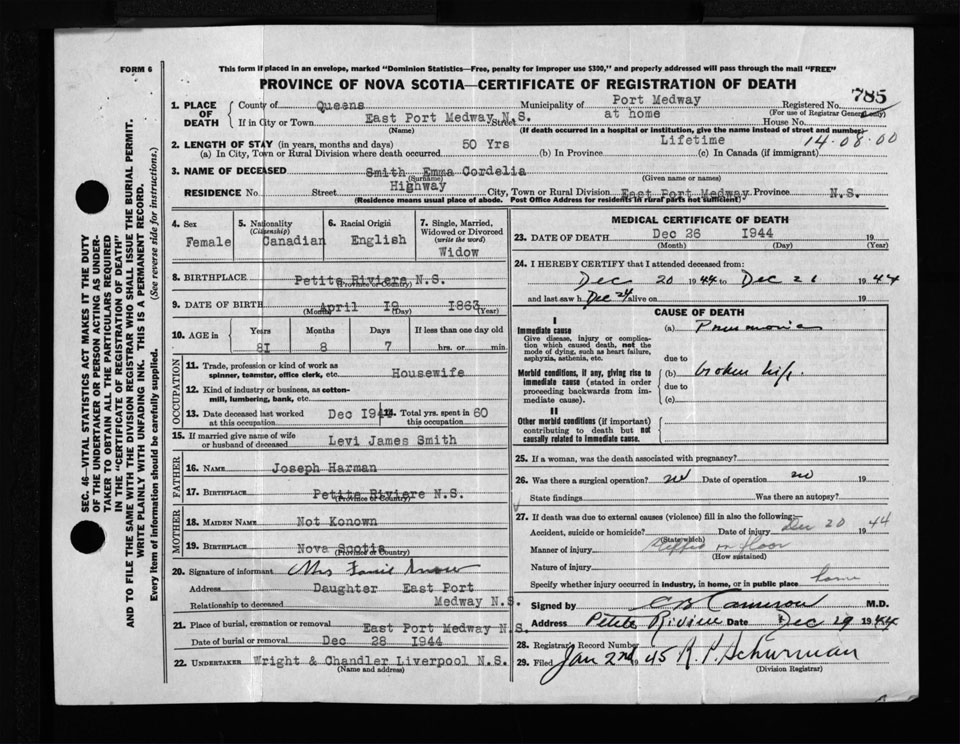 FORM 6
This form if placed in an envelope, marked "Dominion Statistics—Free, penalty for improper use $300," and properly addressed will pass through the mail "FREE"
PROVINCE OF NOVA SCOTIA—CERTIFICATE OF REGISTRATION OF DEATH
785
1. PLACE OF DEATH
County of Queens Municipality of Port Medway Registered No.
(For use of Registrar General only)
If in City or Town East Port Medway N.S. Street at home House No.
(Name) (If death occurred in a hospital or institution, give the name instead of street and number)
2. LENGTH OF STAY (in years, months and days)
(a) In City, Town or Rural Division where death occurred 50 Yrs (b) In Province Lifetime (c) In Canada (if immigrant)
14-08-00
3. NAME OF DECEASED Smith Emma Cordelia
(Surname) (Given name or names)
RESIDENCE No. Street Highway City, Town or Rural Division East Port Medway Province N.S.
(Residence means usual place of abode. Post Office Address for residents in rural parts not sufficient)
4. Sex
Female
5. Nationality
(Citizenship)
Canadian
6. Racial Origin
English
7. Single, Married, Widowed or Divorced
(write the word)
Widow
8. BIRTHPLACE Petite Riviere N.S.
(Province or Country)
9. DATE OF BIRTH April I9 I863
(Month) (Day)
10. AGE in
Years Months Days If less than one day old
8I 8 7 hrs. or min.
OCCUPATION
11. Trade, profession or kind of work as spinner, teamster, office clerk, etc. Housewife
12. Kind of industry or business, as cotton-mill, lumbering, bank, etc.
13. Date deceased last worked at this occupation Dec I944
14. Total yrs. spent in this occupation 60
15. If married give name of wife or husband of deceased Levi James Smith
FATHER
16. NAME Joseph Harman
17. BIRTHPLACE Petite Riviere N.S.
(Province or Country)
MOTHER
18. MAIDEN NAME Not Konown
19. BIRTHPLACE Nova Scotia
(Province or Country)
20. Signature of informant Mrs
Address Daughter East Port
Relationship to deceased Medway N.S.
21. Place of burial, cremation or removal East Port Medway N.S.
Date of burial or removal Dec 28 I944
22. UNDERTAKER Wright & Chandler Liverpool N.S.
(Name and address)
MEDICAL CERTIFICATE OF DEATH
23. DATE OF DEATH Dec 26 I944 19
(Month) (Day) (Year)
24. I HEREBY CERTIFY that I attended deceased from:
Dec 20 1944 to Dec 26 1944
and last saw h Dec 24 alive on 19
CAUSE OF DEATH
I
Immediate cause
Give disease, injury or complication which caused death, not the mode of dying, such as heart failure, asphyxia, asthenia, etc.
(a) Pneumonia
due to
Morbid conditions, if any, giving rise to immediate cause (stated in order proceeding backwards from immediate cause).
(b) broken hip.
due to
(c)
II
Other morbid conditions (if important) contributing to death but not causally related to immediate cause.
25. If a woman, was the death associated with pregnancy?
26. Was there a surgical operation? no Date of operation no 19
State findings Was there an autopsy?
27. If death was due to external causes (violence) fill in also the following:
Accident, suicide or homicide? Date of injury Dec 20 1944
(State which)
Manner of injury on floor
(How sustained)
Nature of injury
Specify whether injury occurred in industry, in home, or in public place home
Signed by C B Cameron M.D.
Address Petite Riviere Date Dec 29 1944
28. Registrar's Record Number
29. Filed Jan 2nd 1945 R. P. Schurman
(Division Registrar)
SEC. 46—VITAL STATISTICS ACT MAKES IT THE DUTY
OF THE UNDERTAKER OR PERSON ACTING AS UNDER-
TAKER TO OBTAIN ALL THE PARTICULARS REQUIRED
IN THE "CERTIFICATE OF REGISTRATION OF DEATH"
AND TO FILE THE SAME WITH THE DIVISION REGISTRAR WHO SHALL ISSUE THE BURIAL PERMIT.
WRITE PLAINLY WITH UNFADING INK. THIS IS A PERMANENT RECORD.
Every item of information should be carefully supplied. (See reverse side for instructions.)